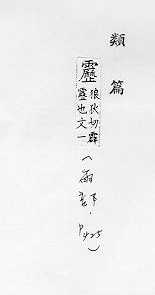 類篇
靂
狼狄切霹
靂也文一
(雨部·P425)